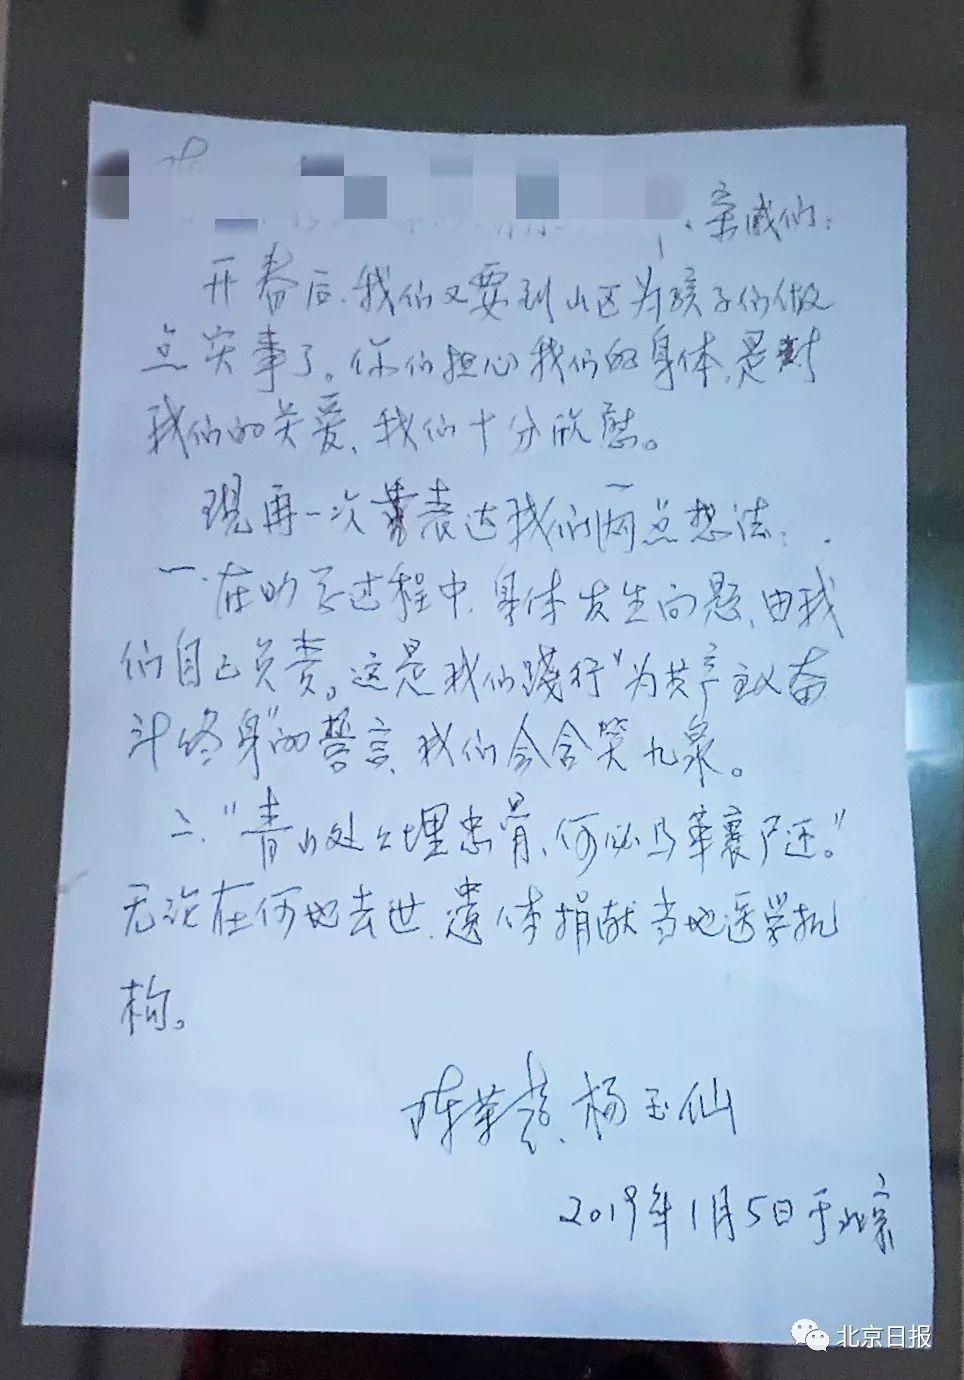 、亲戚们：
开春后，我们又要到山区为孩子们做
点实事了。你们担心我们的身体，是对
我们的关爱，我们十分欣慰。
现再一次表达我们两点想法：
一.在助学过程中，身体发生问题，由我
们自己负责。这是我们践行“为共产主义奋
斗终身”的誓言，我们会含笑九泉。
二.“青山处处埋忠骨，何必马革裹尸还。”
无论在何地去世，遗体捐献当地医学机
构。
杨玉仙
2019年1月5日于北京
北京日报